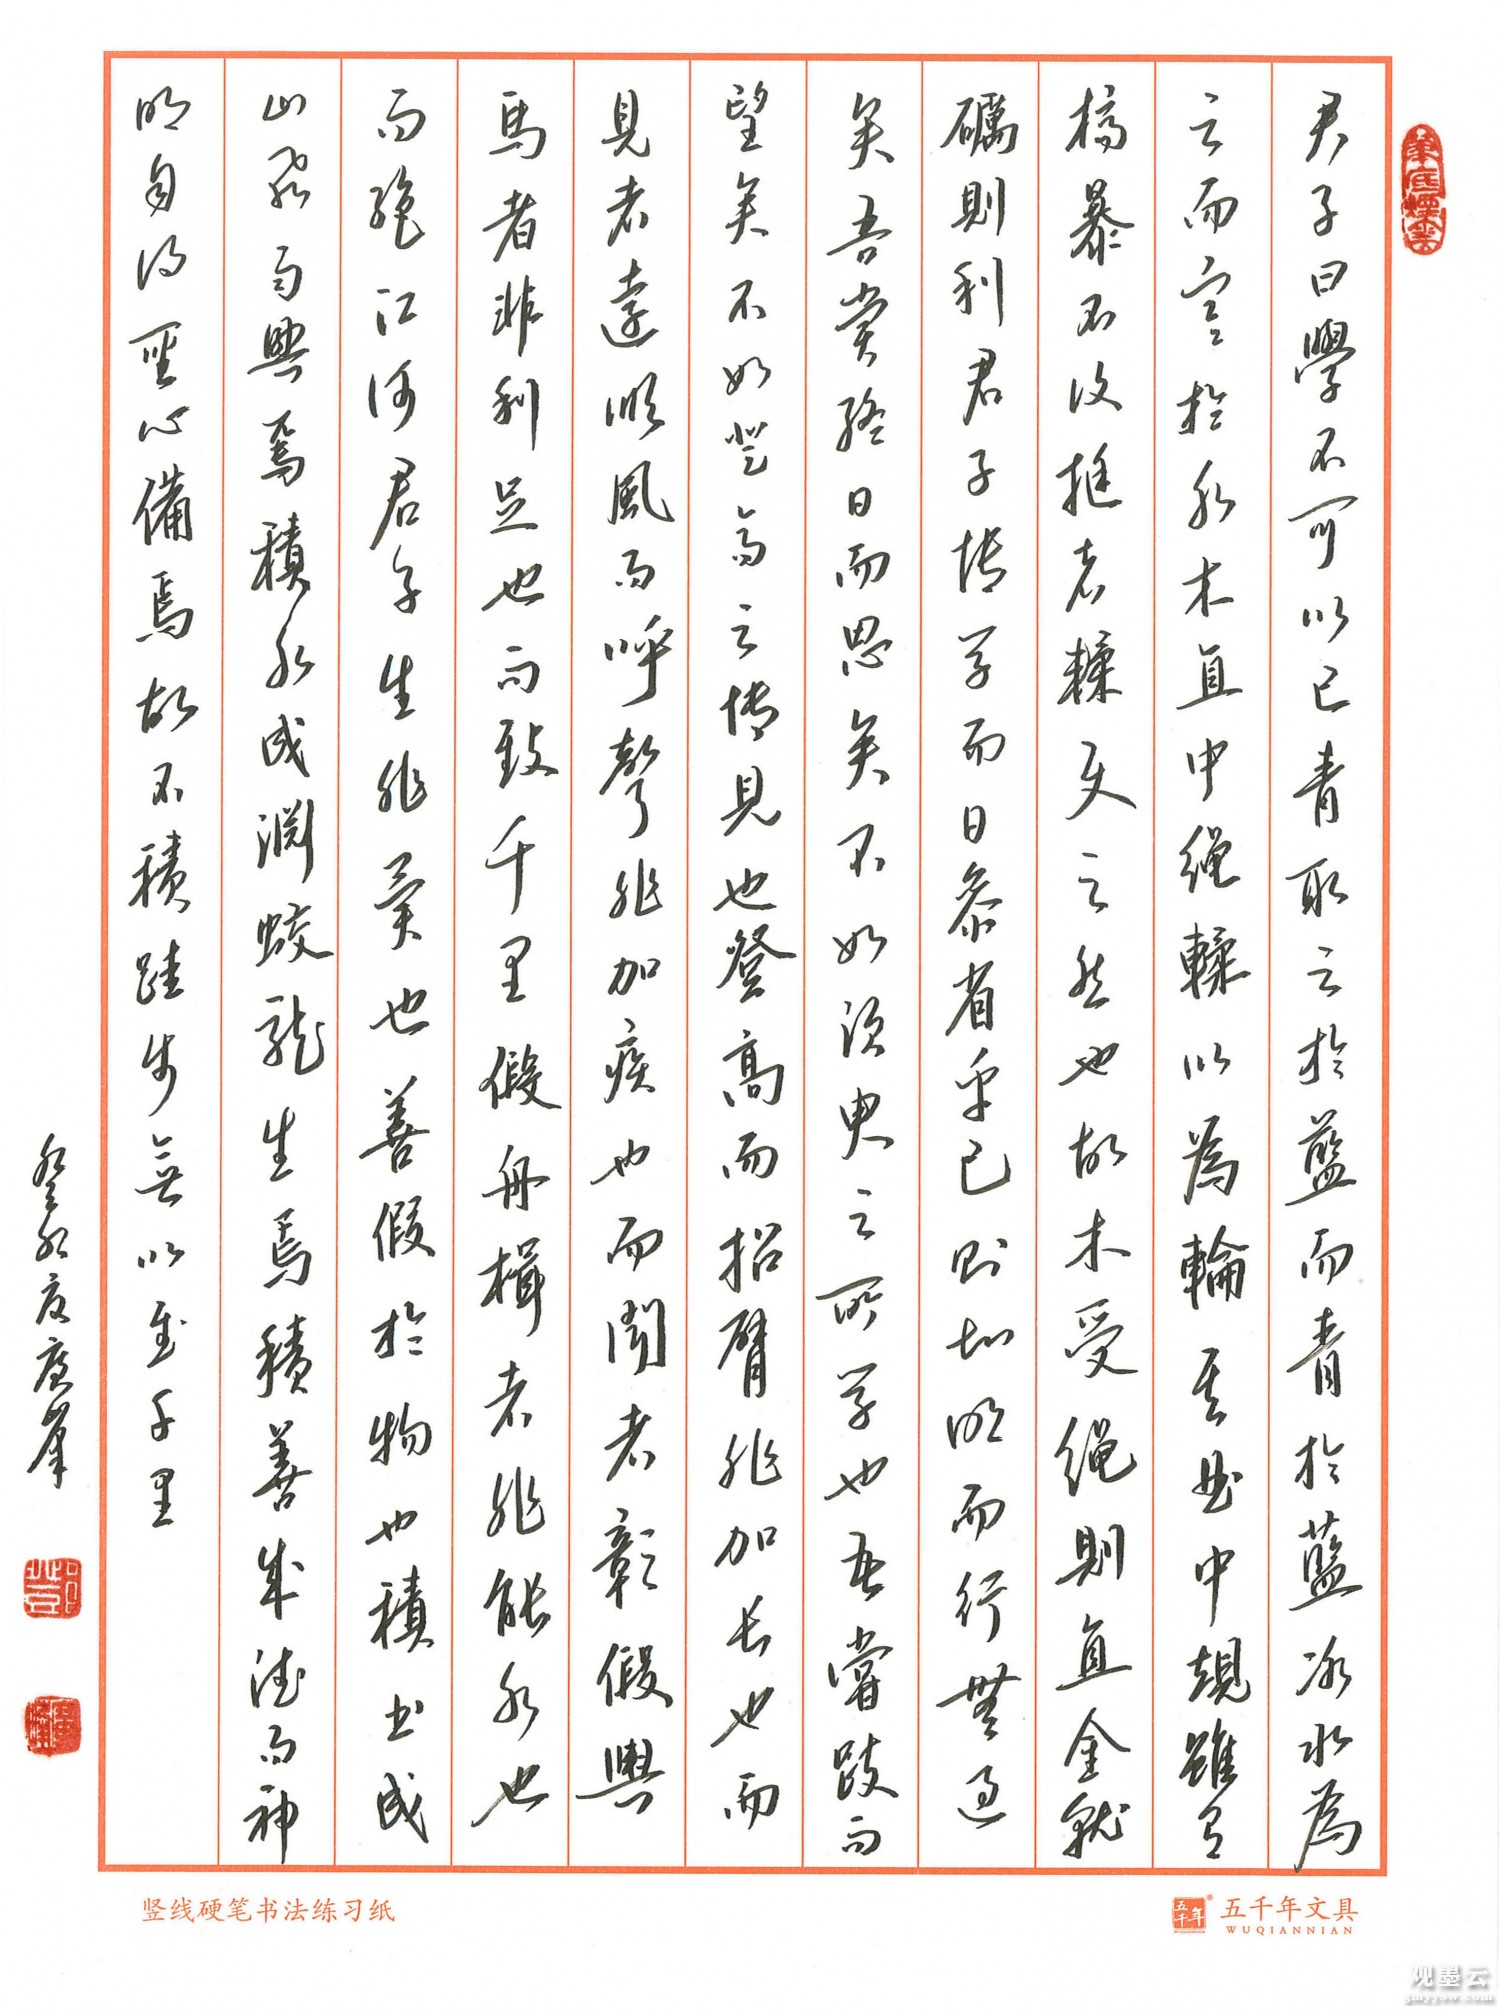 君子曰學不可以已青取之於藍而青於藍冰水為
之而寒於水木直中繩輮以為輪其曲中規雖有
槁暴不復挺者輮使之然也故木受繩則直金就
礪則利君子博學而日參省乎己則知明而行無過
矣吾嘗終日而思矣不如須臾之所學也吾嘗跂而
望矣不如登高之博見也登高而招臂非加長也而
見者遠順風而呼聲非加疾也而聞者彰假輿
馬者非利足也而致千里假舟楫者非能水也
而絕江河君子生非異也善假於物也積土成
山風雨興焉積水成淵蛟龍生焉積善成德而神
明自得聖心備焉故不積跬步無以至千里
竖线硬笔书法练习纸
五千年
五千年文具
WUQIANNIAN
观墨云
gmyyow.com